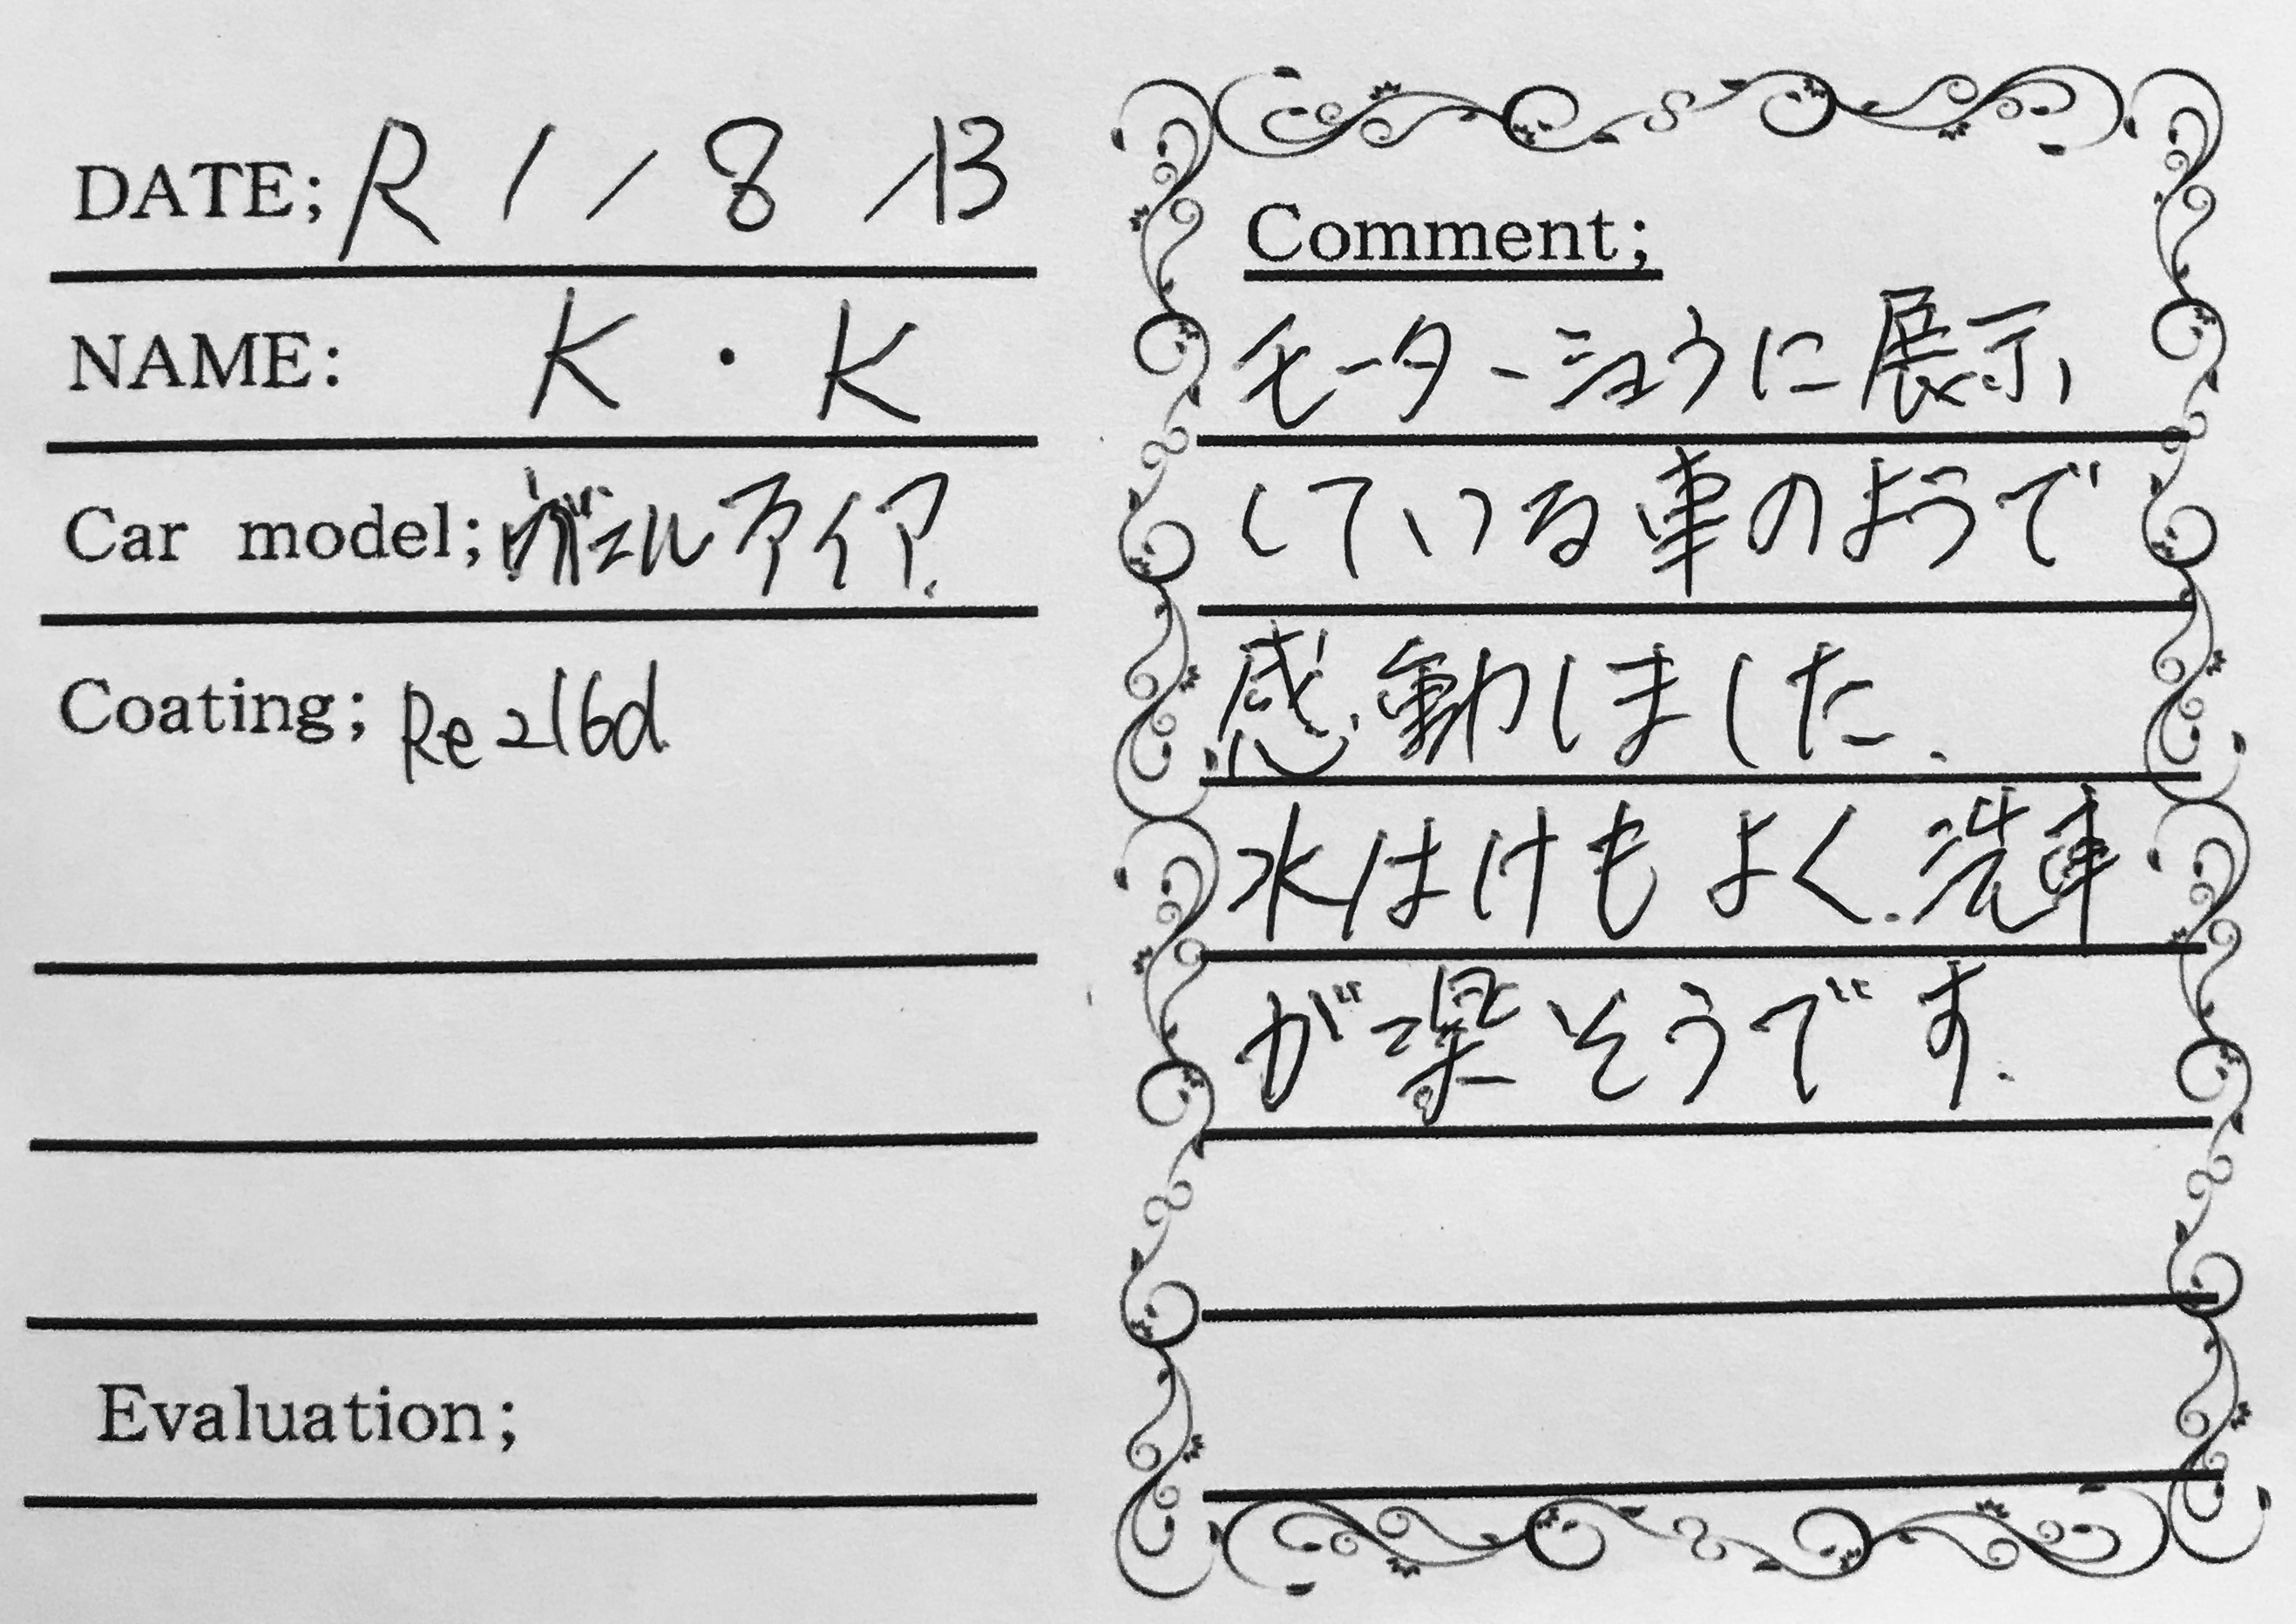 DATE; R 1 / 8 / 13
NAME: K・K
Car model; ヴェルファイア.
Coating; Re216d
Evaluation;
Comment;
モーターショウに展示
している車のようで
感動しました.
水はけもよく.洗車
が楽そうです.